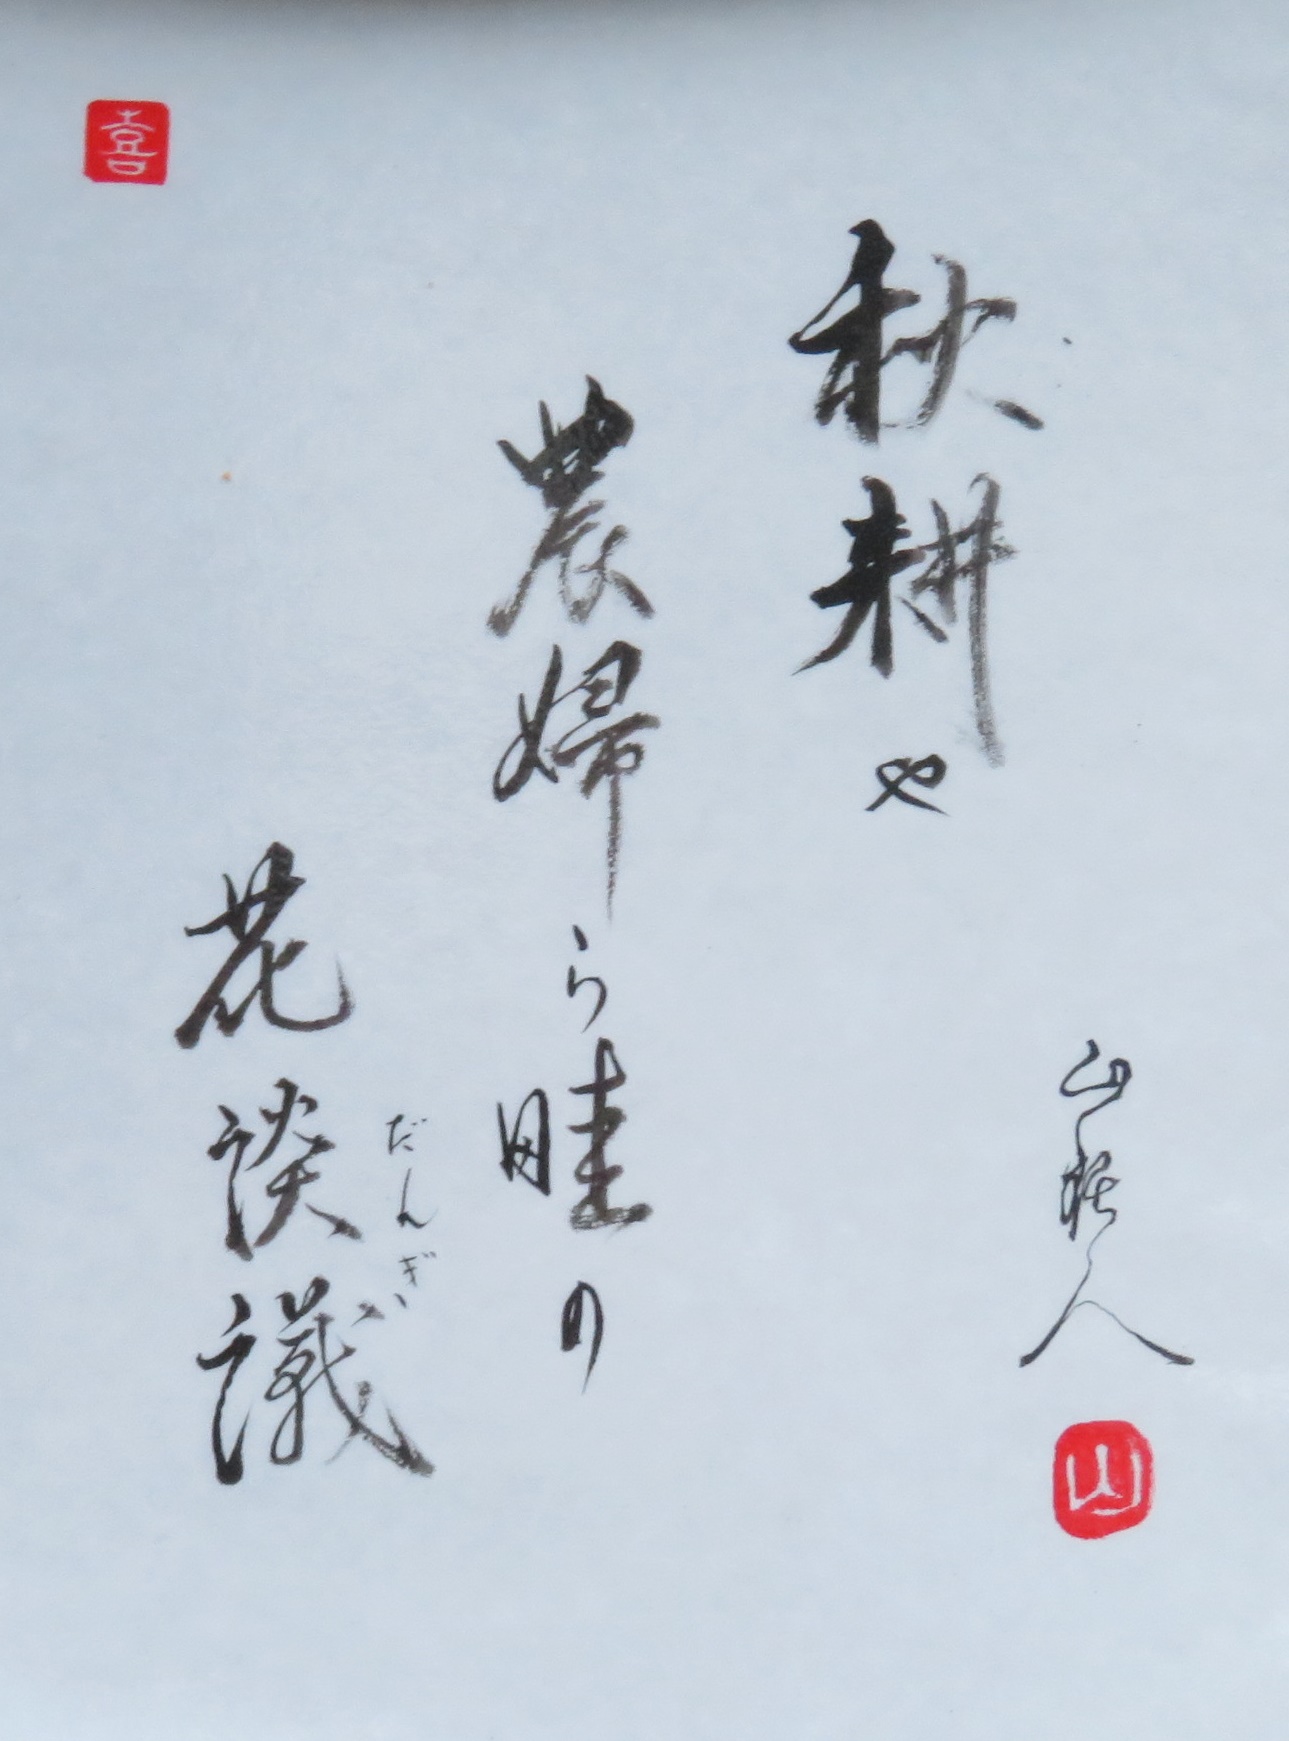 秋耕や
農婦ら畦の
花談議
だんぎ
山
人
山
喜